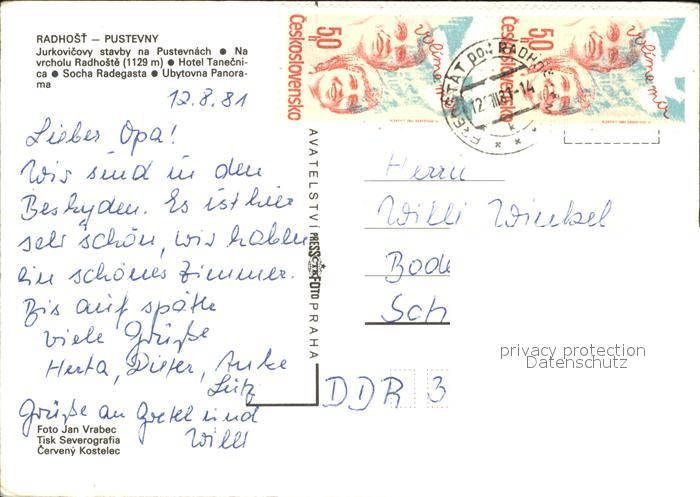 RADHOŠŤ — PUSTEVNY
Jurkovičovy stavby na Pustevnách ● Na
vrcholu Radhoště (1129 m) ● Hotel Tanečni-
ca ● Socha Radegasta ● Ubytovna Panora-
ma
12.8.81
Lieber Opa!
Wir sind in den
Beskyden. Es ist hier
sehr schön, wir haben
ein schönes Zimmer.
Bis auf später
viele Grüße
Herta, Dieter, Anke
Lutz
Grüße an Gretel und
Willi
Foto Jan Vrabec
Tisk Severografia
Červený Kostelec
AVATELSTVÍ PRESSFOTO PRAHA
50
Československo
volíme mír
50
Československo
volíme mír
FRENŠTÁT pod RADHOŠ
12.VIII.81-14
Herrn
Willi Winkel
Bode
Sch
DDR 3
privacy protection
Datenschutz